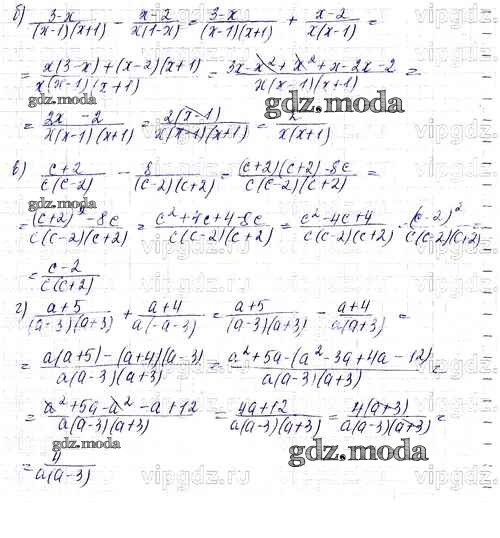 б) (3-x)/((x-1)(x+1)) - (x-2)/(x(1-x)) = (3-x)/((x-1)(x+1)) + (x-2)/(x(x-1)) =
= (x(3-x)+(x-2)(x+1))/(x(x-1)(x+1)) = (3x-x²+x²+x-2x-2)/(x(x-1)(x+1)) =
gdz.moda
= (2x-2)/(x(x-1)(x+1)) = (2(x-1))/(x(x-1)(x+1)) = 2/(x(x+1))
в) (c+2)/(c(c-2)) - 8/((c-2)(c+2)) = ((c+2)(c+2)-8c)/(c(c-2)(c+2)) =
gdz.moda
= ((c+2)²-8c)/(c(c-2)(c+2)) = (c²+4c+4-8c)/(c(c-2)(c+2)) = (c²-4c+4)/(c(c-2)(c+2)) = (c-2)²/(c(c-2)(c+2)) =
= (c-2)/(c(c+2))
г) (a+5)/((a-3)(a+3)) + (a+4)/(a(-a-3)) = (a+5)/((a-3)(a+3)) - (a+4)/(a(a+3)) =
= (a(a+5)-(a+4)(a-3))/(a(a-3)(a+3)) = (a²+5a-(a²-3a+4a-12))/(a(a-3)(a+3)) =
= (a²+5a-a²-a+12)/(a(a-3)(a+3)) = (4a+12)/(a(a-3)(a+3)) = (4(a+3))/(a(a-3)(a+3)) =
gdz.moda
gdz.moda
= 4/(a(a-3))
vipgdz.ru